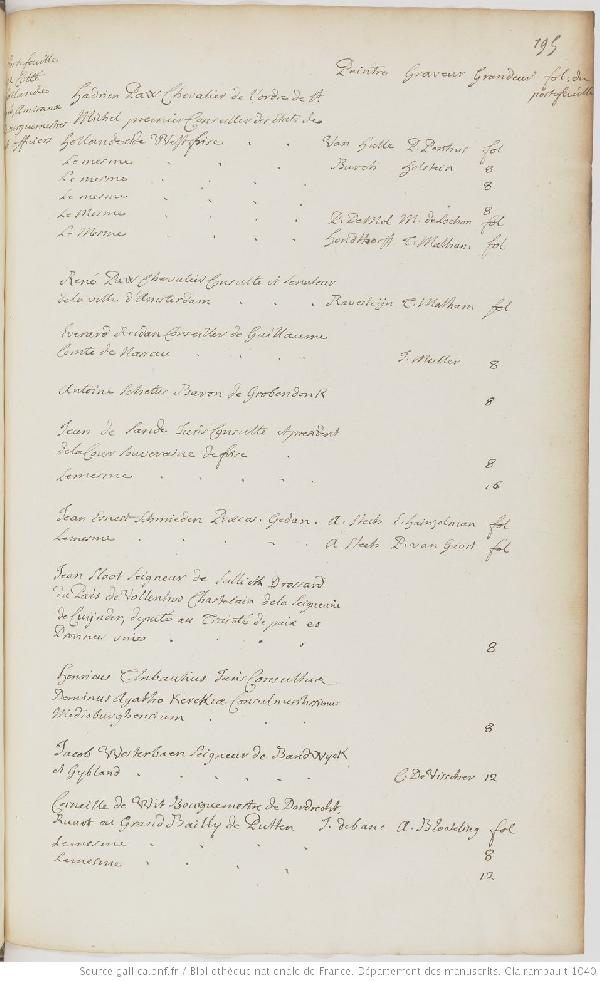 195
Peintre Graveur Grandeur fol. du
portefeuille
Portefeuille
Hollande
Bourguemestres
et officiers
Hadrien Paw Chevalier de l'ordre de St.
Michel premier Conseiller des états de
Hollande et de Westfrise Van Hulle P. Pontius fol
Le mesme Burch Holstein 8
Le mesme 8
Le mesme 8
Le Mesme P. De Mol M. de Lochon fol
Le Mesme Hondthorst T. Matham fol
René Paw Chevalier Consulte et Senateur
de la ville d'Amsterdam Raveiteijn T. Matham fol
Everard Reidan Conseiller de Guillaume
Comte de Nasau J. Muller 8
Antoine Schetts Baron de Grobendonk 8
Jean de Sande Juris Consulte et president
de la Cour souveraine de frise 8
Le mesme 16
Jean Ernest Schmieden Gedan. A. Stech E. Hainzelman fol
Le mesme A Stech P. van Gunst fol
Jean Sloot Seigneur de Drossard
du Païs de Vollenhoo Chastelain de la Seigneurie
de Cuijnder, deputé au Traité de paix es
Provinces unies 8
Henricus Thibautius Juris Consultus
Dominus Agatho Kerckiæ
Middoburghensium 8
Jacob Westerbaen Seigneur de Brandwyck
et Gybland C. De Visscher 12
Corneille de Wit Bourguemestre de Dordrecht,
Ruart ou Grand Bailly de Putten J. de bane A. Blooteling fol
Le mesme 8
Le mesme 12
Source gallica.bnf.fr / Bibliothèque nationale de France. Département des manuscrits. Clairambault 1040